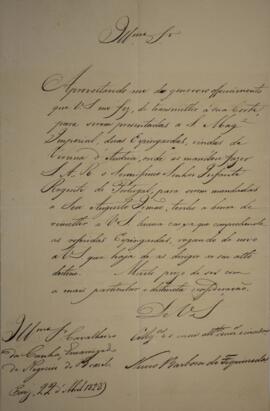 Illmo Sr
Aproveitando me do generoso offerecimento
que V S me fez, de transmittir á sua Corte
para serem presentadas a S. Mage
Imperial, duas Espingardas, vindas da
Vienna d'Austria, onde as mandou fazer
S. A. R. o Serenissimo Senhor Infante
Regente de Portugal, para serem mandadas
a Seu Augusto Irmão, tenho a honra de
remetter a V S huma caixa que comprehende
as referidas Espingardas, rogando de novo
a V S que haja de as dirigir ao seu alto
destino. Muito prezo de ser com
a mais particular e distincta consideração.
De V S
Illmo Sr Cavalheiro
da Cunha, Encarregado
de Negocios do Brasil.
Nuno Barbosa de Figueiredo
22 d'Abril 1828